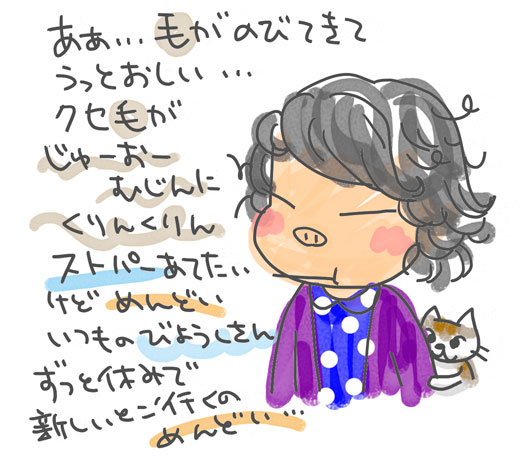 ああ…毛がのびてきて
うっとおしい…
クセ毛が
じゅーおー
むじんに
くりんくりん
ストパーあてたい
けど めんどい
いつものびようしさん
ずっと休みで
新しいとこ行くの
めんどい…